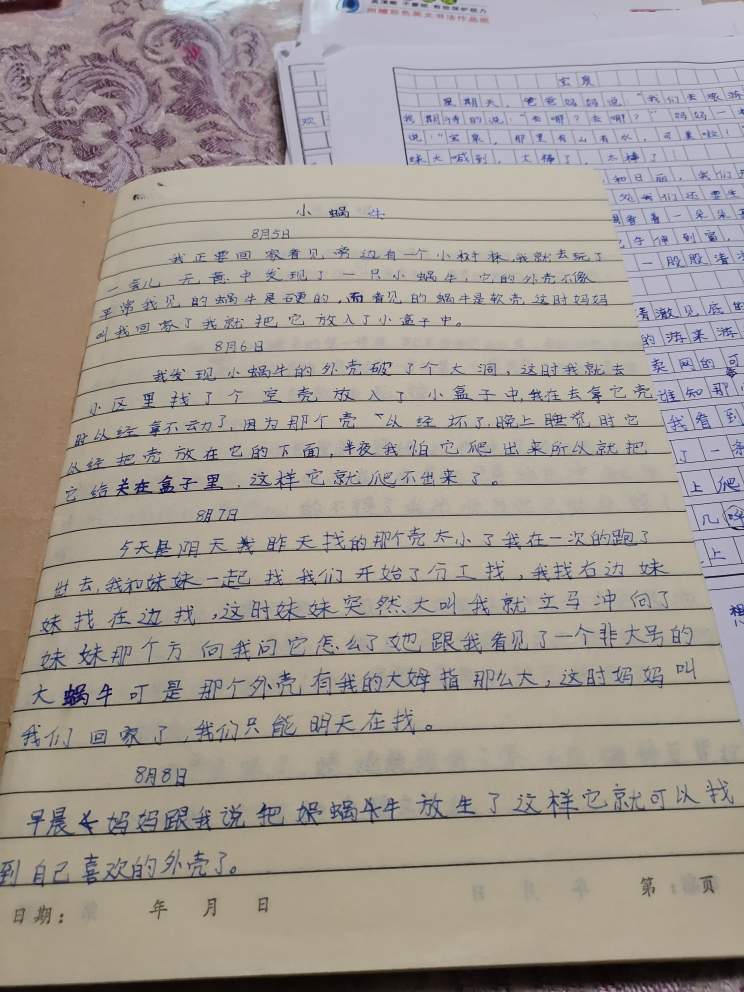 小蜗牛
8月5日
我正要回家看见旁边有一个小树林,我就去玩了
一会儿无意中发现了一只小蜗牛,它的外壳不像
平常我见的蜗牛是硬的,而看见的蜗牛是软壳,这时妈妈
叫我回家了我就把它放入了小盒子中。
8月6日
我发现小蜗牛的外壳破了个大洞,这时我就去
小区里找了个空壳放入了小盒子中,我在去拿它壳
时以经拿不动了,因为那个壳以经坏了,晚上睡觉时它
以经把壳放在它的下面,半夜我怕它爬出来所以就把
它给关在盒子里,这样它就爬不出来了。
8月7日
今天是阴天我昨天找的那个壳太小了我在一次的跑了
出去,我和妹妹一起找我们开始了分工找,我找右边妹
妹找在边找,这时妹妹突然大叫我就立马冲向了
妹妹那个方向我问它怎么了她跟我看见了一个非大号的
大蜗牛可是那个外壳有我的大姆指那么大,这时妈妈叫
我们回家了,我们只能明天在找。
8月8日
早晨妈妈跟我说把蜗牛放生了这样它就可以找
到自己喜欢的外壳了。
日期: 年 月 日 第 页
星期天,爸爸妈妈说"我们去旅游
我期待的说:"去哪?去哪?"妈妈一
说:"宜泉,那里有山有水,可美啦!
妹大喊到,太棒了,太棒了
和日丽,我们
着一朵朵
一股股清
清澈见底的
的游来游
卖网的可
谁知那
我看到
了一条
上爬
几
上
想
欢